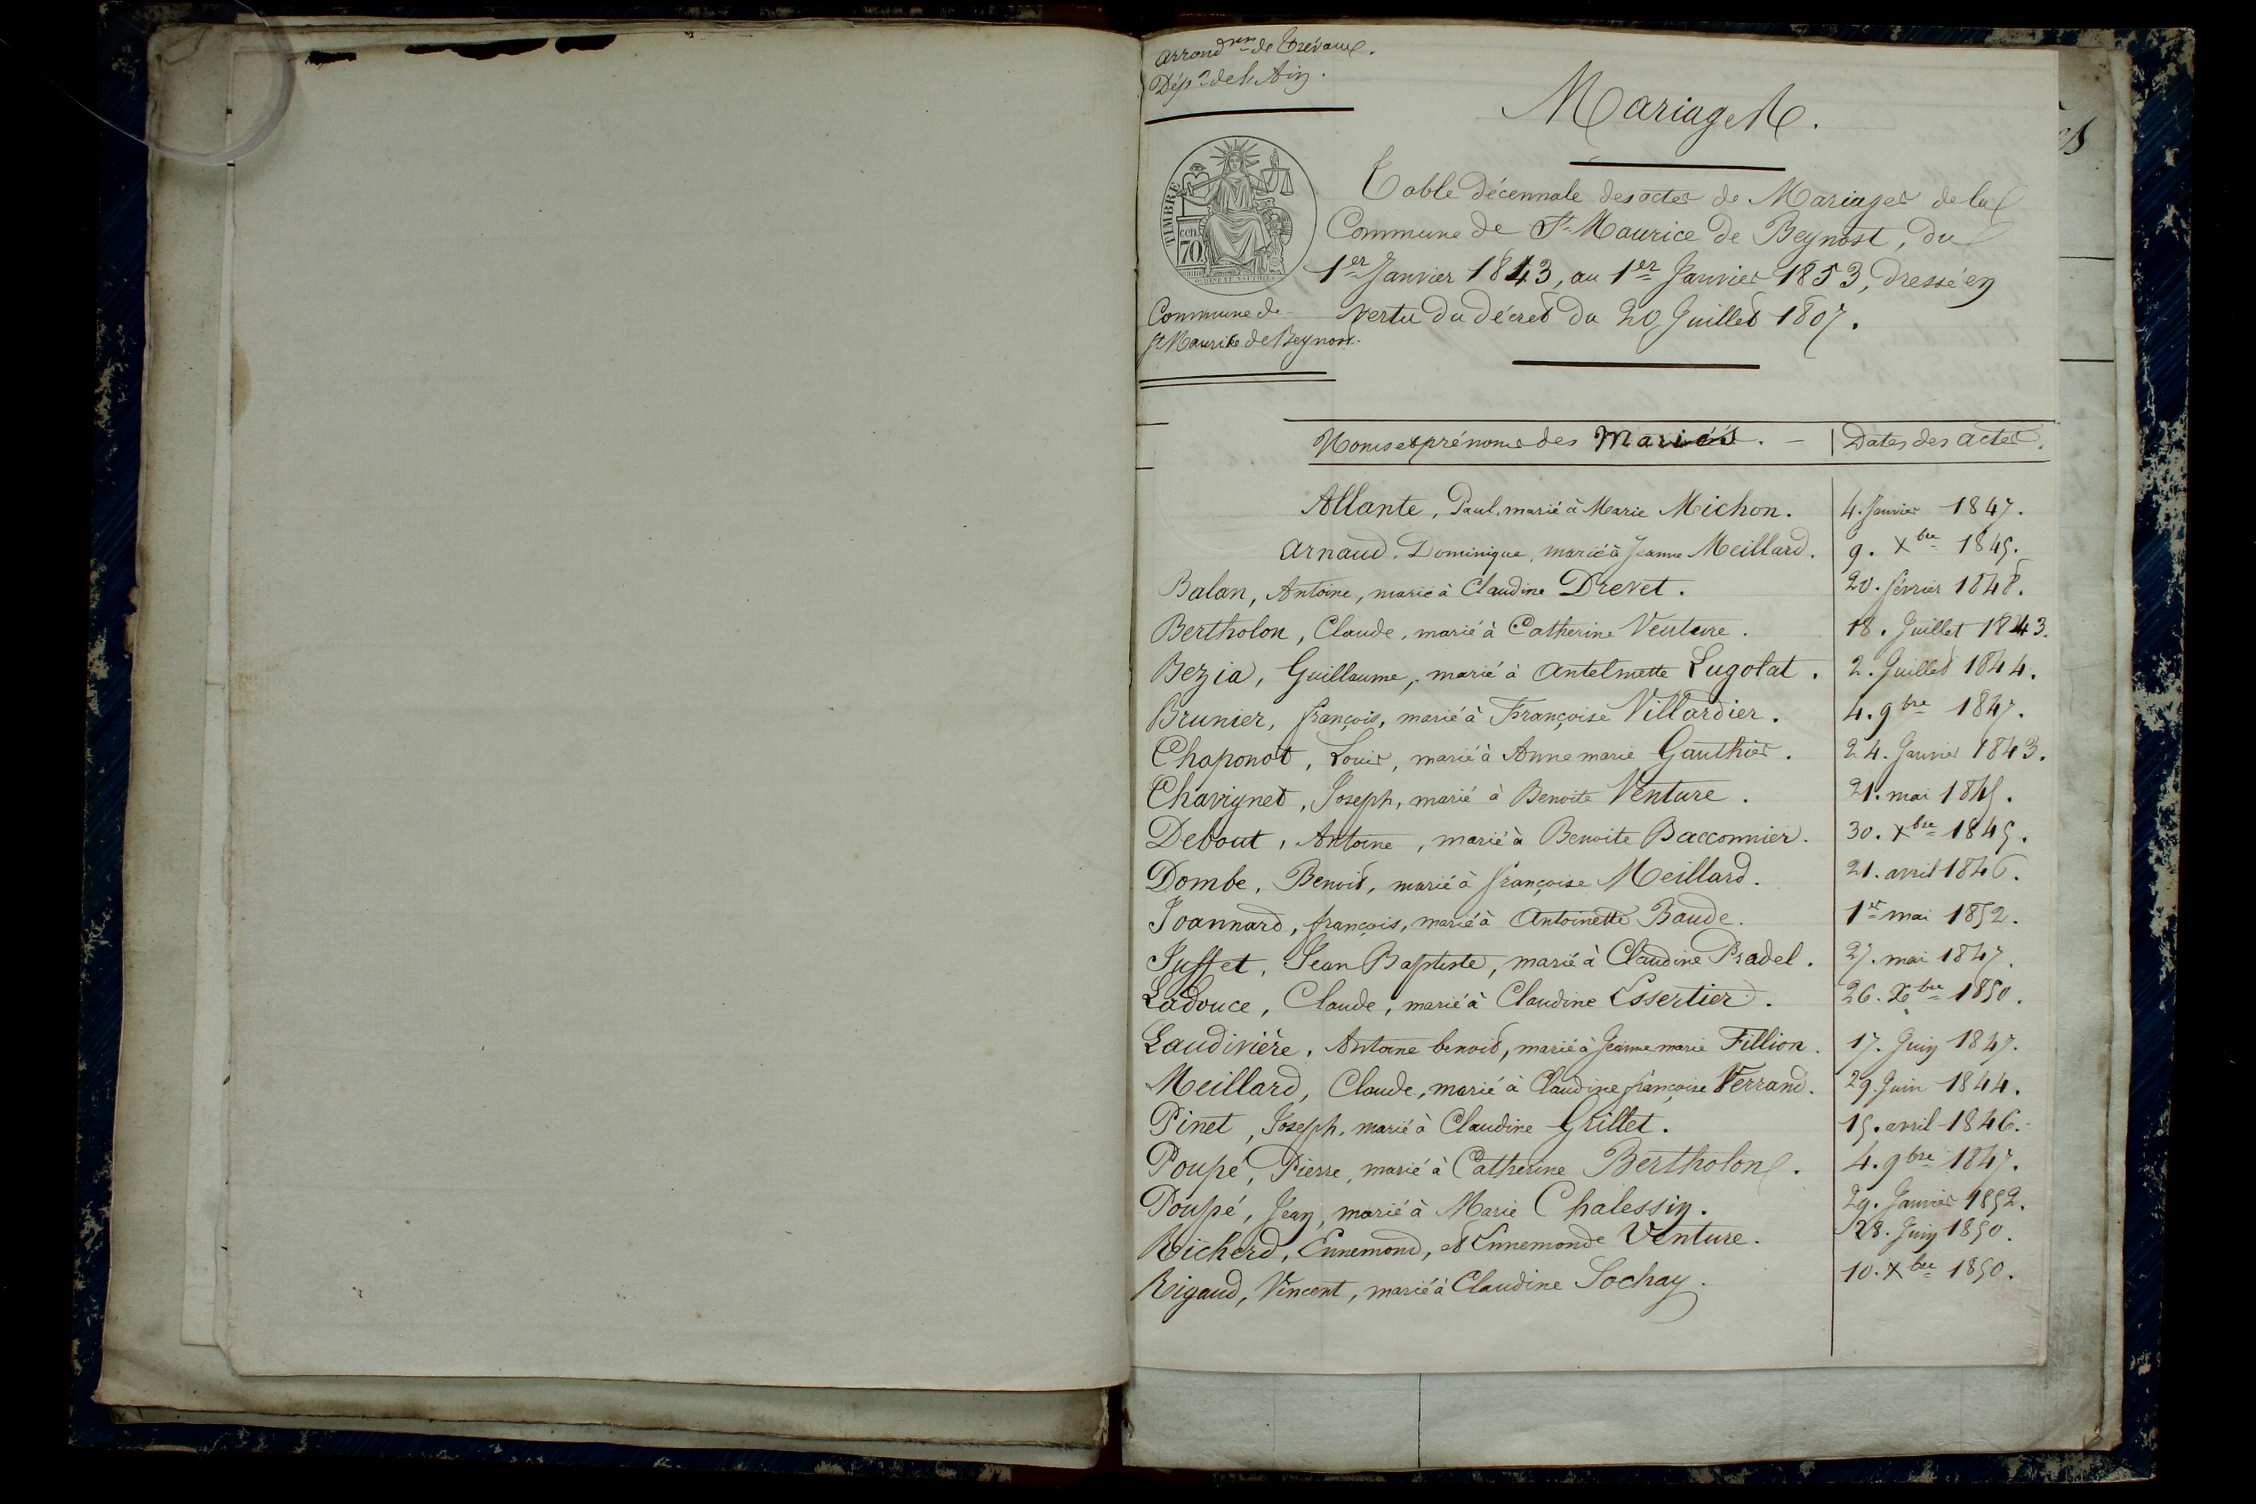 Arrond.ment de Trévoux.
Dép.t de l'Ain.
Mariages.
TIMBRE
cen.
70
Table décennale des actes de Mariages de la
Commune de St. Maurice de Beynost, du
1er Janvier 1843, au 1er Janvier 1853, dressé en
vertu du décret du 20 Juillet 1807.
Commune de
St Maurice de Beynost.
Noms et prénoms des Mariés. — Dates des actes.
Allante, Paul, marié à Marie Michon. 4. Janvier 1847.
Arnaud, Dominique, marié à Jeanne Meillard. 9. Xbre 1845.
Balan, Antoine, marié à Claudine Drevet. 20. février 1848.
Bertholon, Claude, marié à Catherine Venture. 18. Juillet 1843.
Bezia, Guillaume, marié à Antelmette Lugotat. 2. Juillet 1844.
Brunier, françois, marié à Françoise Villardier. 4. 9bre 1847.
Chaponot, Louis, marié à Anne marie Gauthier. 24. Janvier 1843.
Chavignet, Joseph, marié à Benoite Venture. 21. mai 1845.
Debout, Antoine, marié à Benoite Bacconnier. 30. Xbre 1845.
Dombe, Benoit, marié à françoise Meillard. 21. avril 1846.
Joannard, françois, marié à Antoinette Baude. 1er mai 1852.
Juffet, Jean Baptiste, marié à Claudine Pradel. 27. mai 1847.
Ladouce, Claude, marié à Claudine Essertier. 26. Xbre 1850.
Laudivière, Antoine benoit, marié à Jeanne marie Fillion. 17. Juin 1847.
Meillard, Claude, marié à Claudine françoise Verrand. 29. Juin 1844.
Pinet, Joseph, marié à Claudine Grillet. 15. avril 1846.
Poupé, Pierre, marié à Catherine Bertholon. 4. 9bre 1847.
Poupé, Jean, marié à Marie Chalessin. 29. Janvier 1852.
Richerd, Ennemond, et Ennemonde Venture. 28. Juin 1850.
Rigaud, Vincent, marié à Claudine Sochay. 10. Xbre 1850.